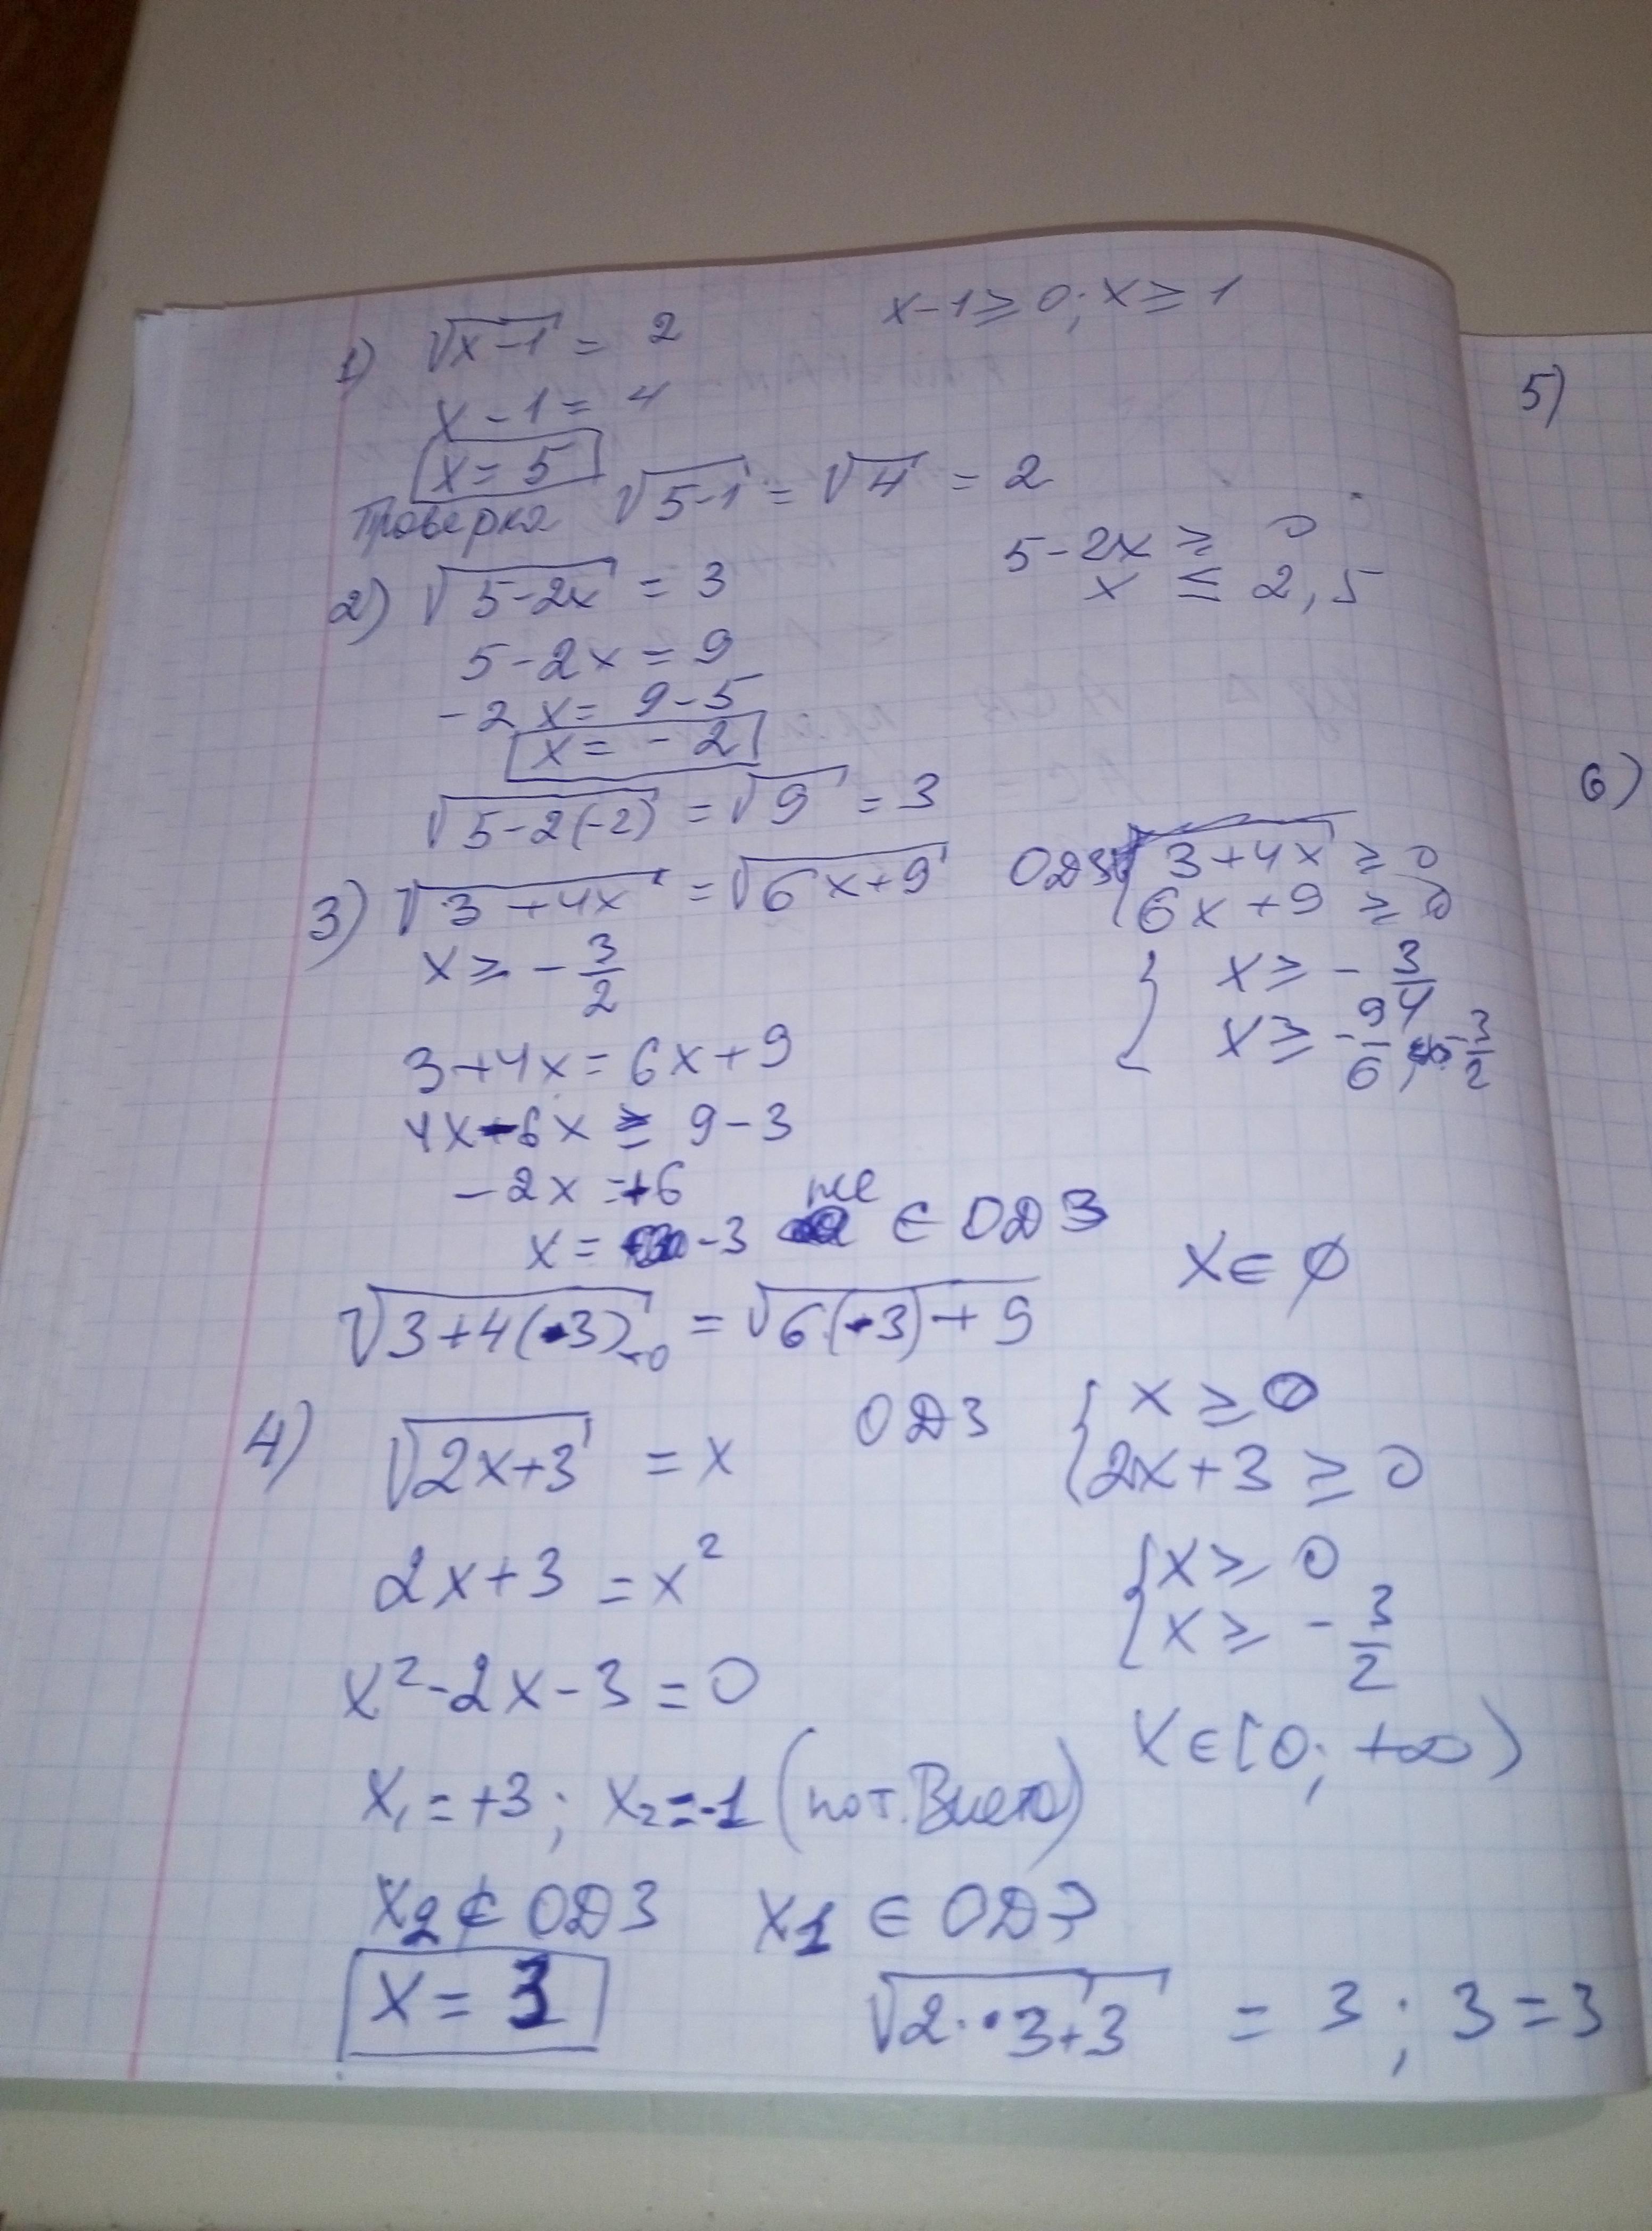 1) √(x-1) = 2 x-1≥0; x≥1
x-1=4
x=5
Проверка √(5-1) = √4 = 2
2) √(5-2x) = 3 5-2x ≥ 0
x ≤ 2,5
5-2x=9
-2x=9-5
x=-2
√(5-2(-2)) = √9 = 3
3) √(3+4x) = √(6x+9) ОДЗ { 3+4x ≥ 0
6x+9 ≥ 0
x ≥ -3/2 { x ≥ -3/4
x ≥ -9/6; -3/2
3+4x=6x+9
4x-6x = 9-3
-2x=+6
x = -3 не ∈ ОДЗ
x∈∅
√(3+4(-3)) <0 = √(6(-3)+9)
4) √(2x+3) = x ОДЗ { x ≥ 0
2x+3 ≥ 0
2x+3 = x² { x ≥ 0
x ≥ -3/2
x²-2x-3=0
x∈[0; +∞)
x₁=+3; x₂=-1 (по т. Виета)
x₂ ∉ ОДЗ x₁ ∈ ОДЗ
x = 3 √(2·3+3) = 3; 3=3
5)
6)